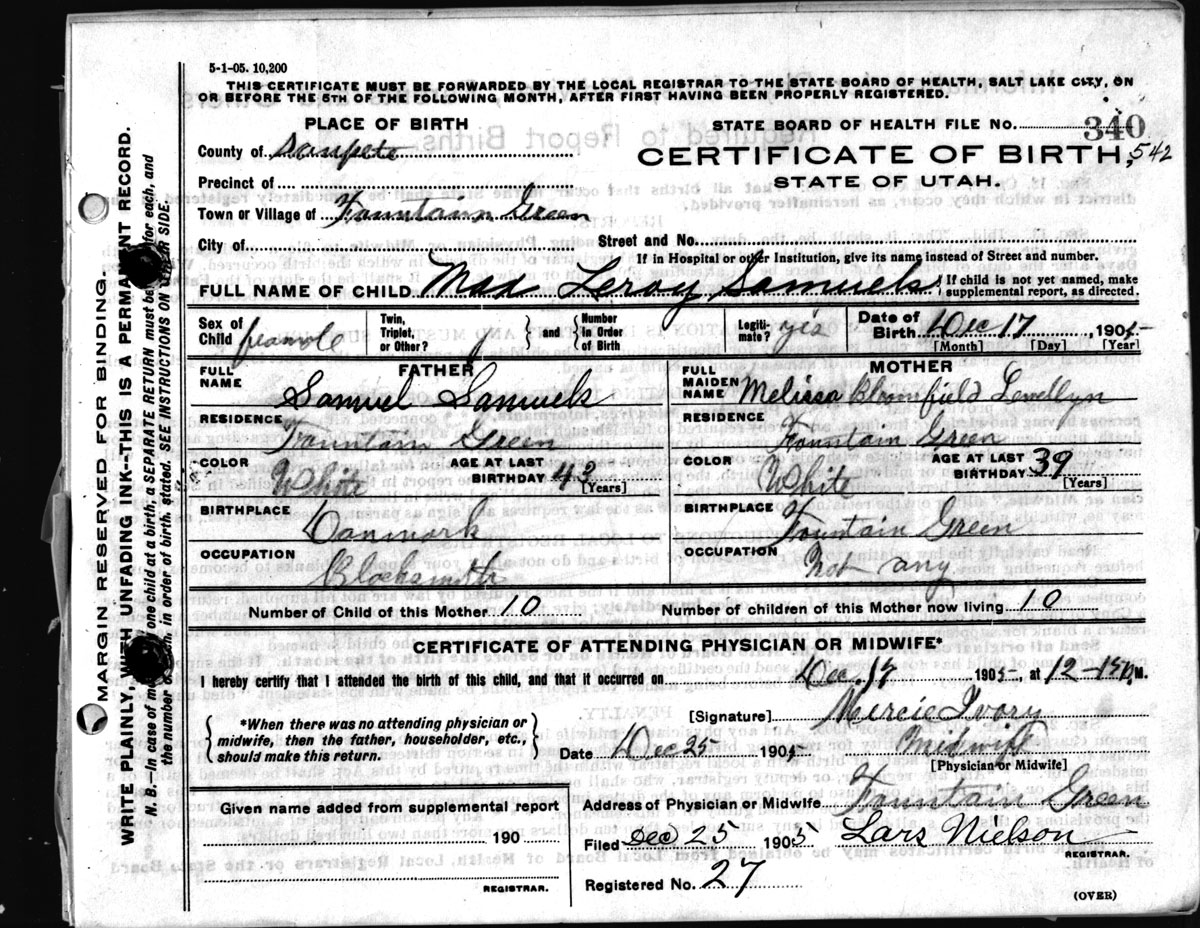 5-1-05. 10,200
THIS CERTIFICATE MUST BE FORWARDED BY THE LOCAL REGISTRAR TO THE STATE BOARD OF HEALTH, SALT LAKE CITY, ON
OR BEFORE THE 5TH OF THE FOLLOWING MONTH, AFTER FIRST HAVING BEEN PROPERLY REGISTERED.
PLACE OF BIRTH
STATE BOARD OF HEALTH FILE No. 340
County of Sanpete
CERTIFICATE OF BIRTH, 542
Precinct of
STATE OF UTAH.
Town or Village of Fountain Green
City of Street and No.
If in Hospital or other Institution, give its name instead of Street and number.
FULL NAME OF CHILD Max Leroy Samuels { If child is not yet named, make
supplemental report, as directed.
Sex of
Child
Twin,
Triplet,
or Other? } and { Number
in Order
of Birth
Legiti-
mate? yis
Date of
Birth Dec 17, 1905
[Month] [Day] [Year]
FATHER
FULL
NAME Samuel Samuels
RESIDENCE
Fountain Green
COLOR
White
AGE AT LAST
BIRTHDAY 43
[Years]
BIRTHPLACE
Danmark
OCCUPATION
Blacksmith
MOTHER
FULL
MAIDEN
NAME Melissa Bloomfield Lewellyn
RESIDENCE
Fountain Green
COLOR
White
AGE AT LAST
BIRTHDAY 39
[Years]
BIRTHPLACE
Fountain Green
OCCUPATION
Not any
Number of Child of this Mother 10
Number of children of this Mother now living 10
CERTIFICATE OF ATTENDING PHYSICIAN OR MIDWIFE*
I hereby certify that I attended the birth of this child, and that it occurred on Dec. 17 1905, at 12-15 M.
{ *When there was no attending physician or
midwife, then the father, householder, etc.,
should make this return. }
[Signature] Mercie Ivory
Date Dec 25 1905 Midwift
[Physician or Midwife]
Given name added from supplemental report
190
REGISTRAR.
Address of Physician or Midwife Fountain Green
Filed Dec 25 1905 Lars Nielson
REGISTRAR.
Registered No. 27
(OVER)
MARGIN RESERVED FOR BINDING.
WRITE PLAINLY, WITH UNFADING INK--THIS IS A PERMANENT RECORD.
N. B.--In case of more than one child at a birth, a SEPARATE RETURN must be for each, and
the number in order of birth, stated. SEE INSTRUCTIONS ON OTHER SIDE.